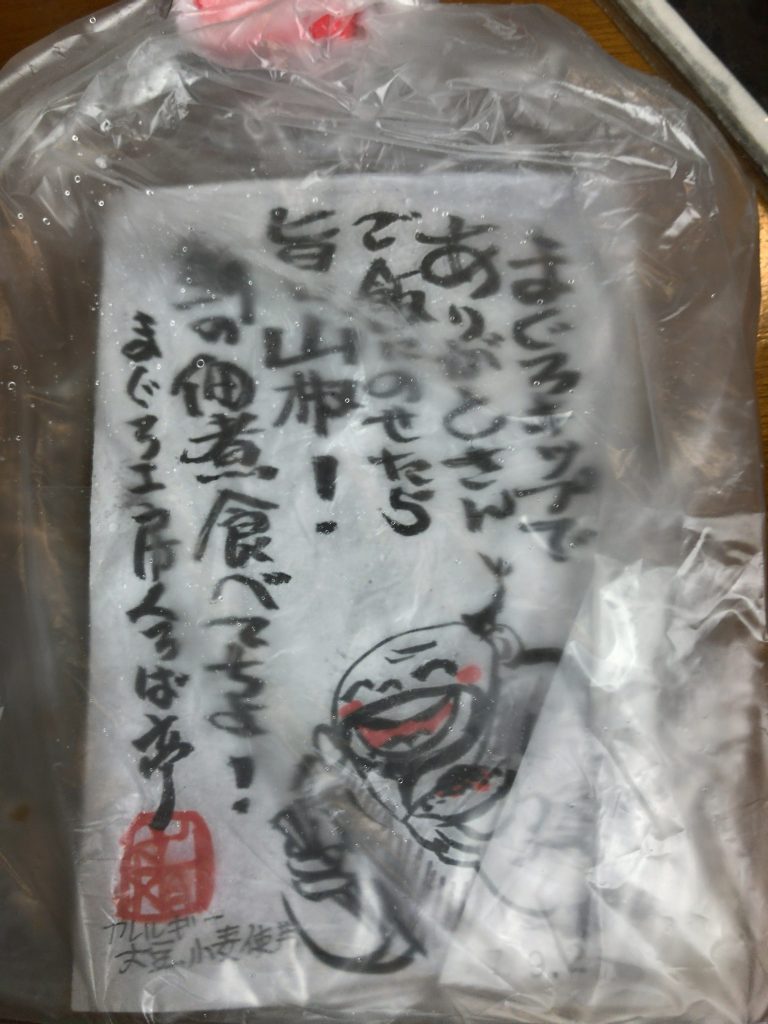 まぐろカップで
ありがとさん
ご飯にのせたら
旨い山椒!
の佃煮食べてちょ!
まぐろ工房くろば亭
アレルギー
大豆、小麦使用
9.2